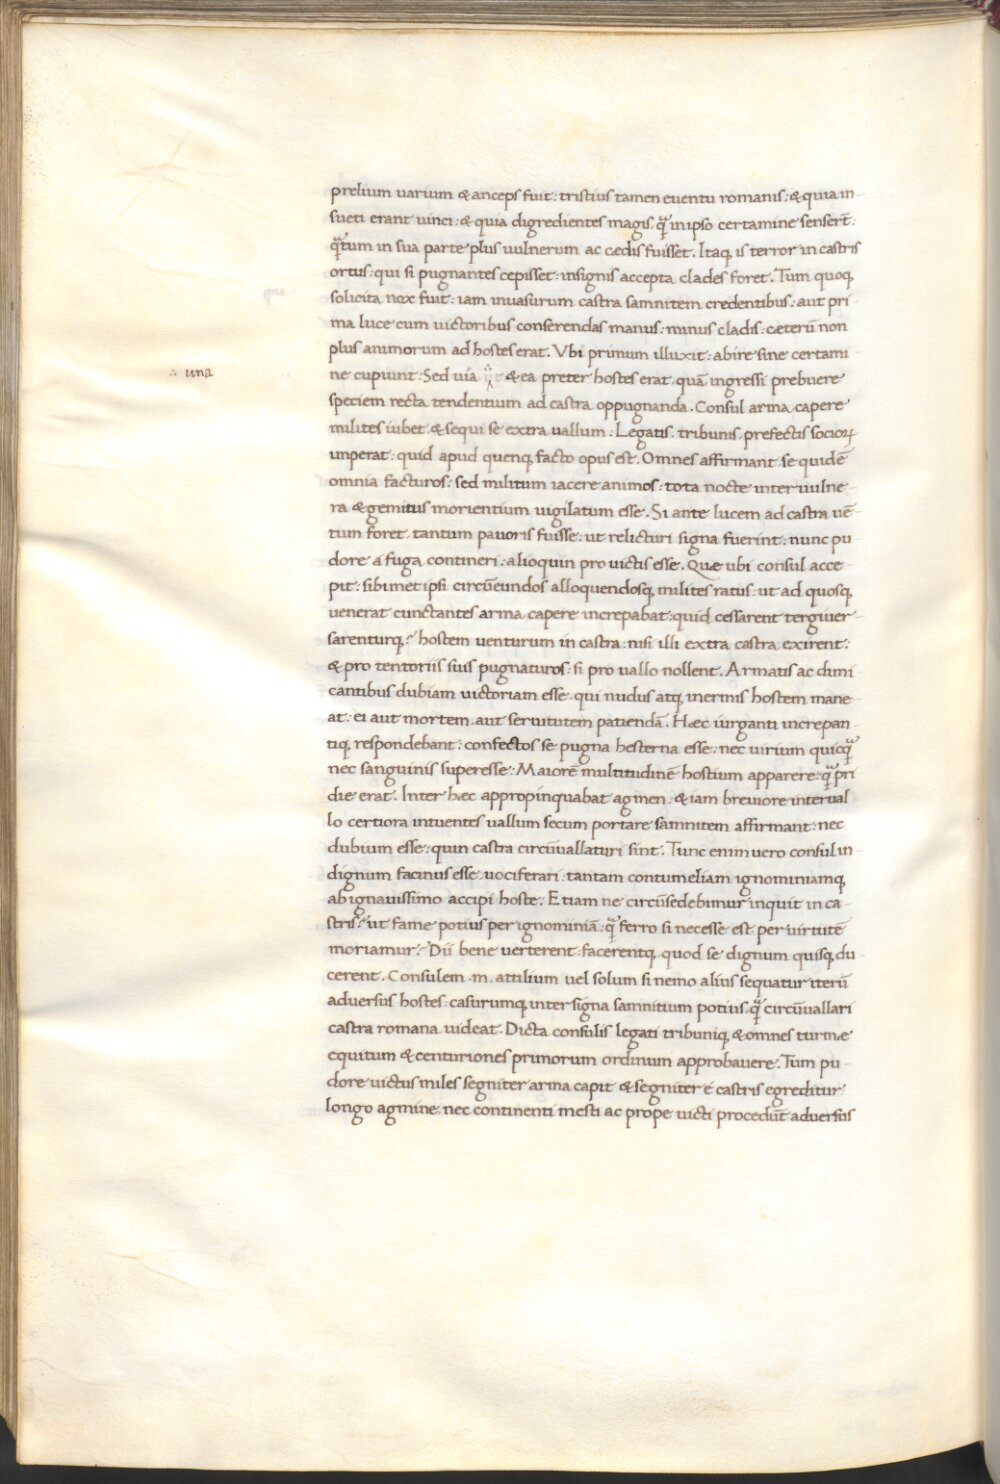 prelium uarium & anceps fuit: tristius tamen euentu romanis: & quia in-
sueti erant uinci: & quia digredientes magis. q̃ in ipso certamine senserẽt:
q̃tum in sua parte plus uulnerum ac cædis fuisset. Itaq; is terror in castris
ortus: qui si pugnantes cepisset: insignis accepta clades foret. Tum quoq;
solicita nox fuit: iam inuasurum castra samnitem credentibus: aut pri-
ma luce cum uictoribus conserendas manus: minus cladis: cæterũ non
plus animorum ad hostes erat. Vbi primum illuxit: abire sine certami-
∴ una
ne cupiunt: Sed uia & ea preter hostes erat. quã ingressi prebuere
speciem recta tendentium ad castra oppugnanda. Consul arma capere
milites iubet. & sequi se extra uallum: Legatis. tribunis. prefectis socioꝝ
imperat: quid apud quenq; facto opus est. Omnes affirmant se quidẽ
omnia facturos: sed militum iacere animos: tota nocte inter uulne-
ra & gemitus morientium uigilatum esse. Si ante lucem ad castra uẽ-
tum foret. tantum pauoris fuisse: ut relicturi signa fuerint: nunc pu
dore a fuga contineri: alioquin pro uictis esse. Quæ ubi consul acce-
pit: sibimet ipsi circũeundos alloquendosq; milites ratus: ut ad quosq;
uenerat cunctantes arma capere increpabat: quid cessarent tergiuer-
sarenturq;? hostem uenturum in castra: nisi illi extra castra exirent:
& pro tentoriis suis pugnaturos: si pro uallo nollent. Armatis ac dimi-
cantibus dubiam uictoriam esse. qui nudus atq; inermis hostem mane-
at: ei aut mortem. aut seruitutem patiendã. Hæc iurganti increpan-
tiq; respondebant: confectos se pugna hesterna esse: nec uirium quicq̃
nec sanguinis superesse: Maiorẽ multitudinẽ hostium apparere: q̃ pri
die erat. Inter hæc appropinquabat agmen: & iam breuiore interual
lo certiora intuentes uallum secum portare samnitem affirmant: nec
dubium esse: quin castra circũuallaturi sint. Tunc enim uero consul in
dignum facinus esse. uociferari: tantam contumeliam ignominiamq;
ab ignauissimo accipi hoste. Etiam ne circũsedebimur inquit in ca-
stris? ut fame potius per ignominiã. q̃ ferro si necesse est per uirtutẽ
moriamur? Dii bene uerterent. facerentq; quod se dignum quisq; du-
cerent. Consulem .m. attilium uel solum si nemo alius sequatur iterũ
aduersus hostes: casurumq; inter signa samnitium potius. q̃ circũuallari
castra romana uideat. Dicta consulis legati tribuniq; & omnes turmæ
equitum & centuriones primorum ordinum approbauere. Tum pu-
dore uictus miles segniter arma capit & segniter e castris egreditur:
longo agmine: nec continenti mesti ac prope uicti procedũt aduersus